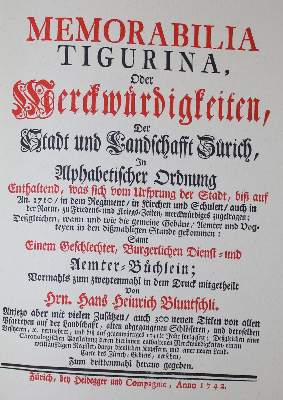 MEMORABILIA
TIGURINA,
Oder
Merckwürdigkeiten,
Der
Stadt und Landschafft Zürich,
In
Alphabetischer Ordnung
Enthaltend, was sich vom Ursprung der Stadt, biß auf
An. 1710/ in dem Regiment/ in Kirchen und Schulen/ auch in
der Natur, zu Friedens- und Kriegs-Zeiten, merckwürdiges zugetragen;
Deßgleichen, wann und wie die gemeine Gebäue/ Aemter und Vog-
teyen in den dißmahligen Stande gekommen:
Samt
Einem Geschlechter, Burgerlichen Dienst- und
Aemter-Büchlein;
Vormahls zum zweytenmahl in dem Druck mitgetheilt
Von
Hrn. Hans Heinrich Bluntschli.
Anjezo aber mit vielen Zusätzen/ auch 300 neuen Titlen von allen
Pfarreyen auf der Landschaft, alten abgegangenen Schlössern, und derselben
Besitzeren, vermehrt, und biß auf gegenwärtiges 1742te Jahr fortgesetzt; Deßgleichen einer
Chronologischen
vollständigen Register,
Carte des Zürich-Gebiets, versehen,
Zum drittenmahl heraus gegeben.
Zürich, bey Heidegger und Compagnie, Anno 1742.